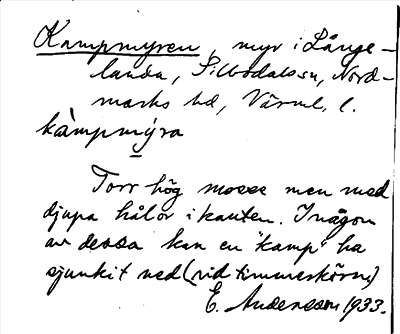 Kampmyren, myr i Långe-
landa, Silbodals sn, Nord-
marks hd, Värml. l.
kàmpmýra
Torr hög mosse men med
djupa hålor i kanten. I någon
av dessa kan en "kamp" ha
sjunkit ned (vid timmerkörn)
E. Andersson 1933.